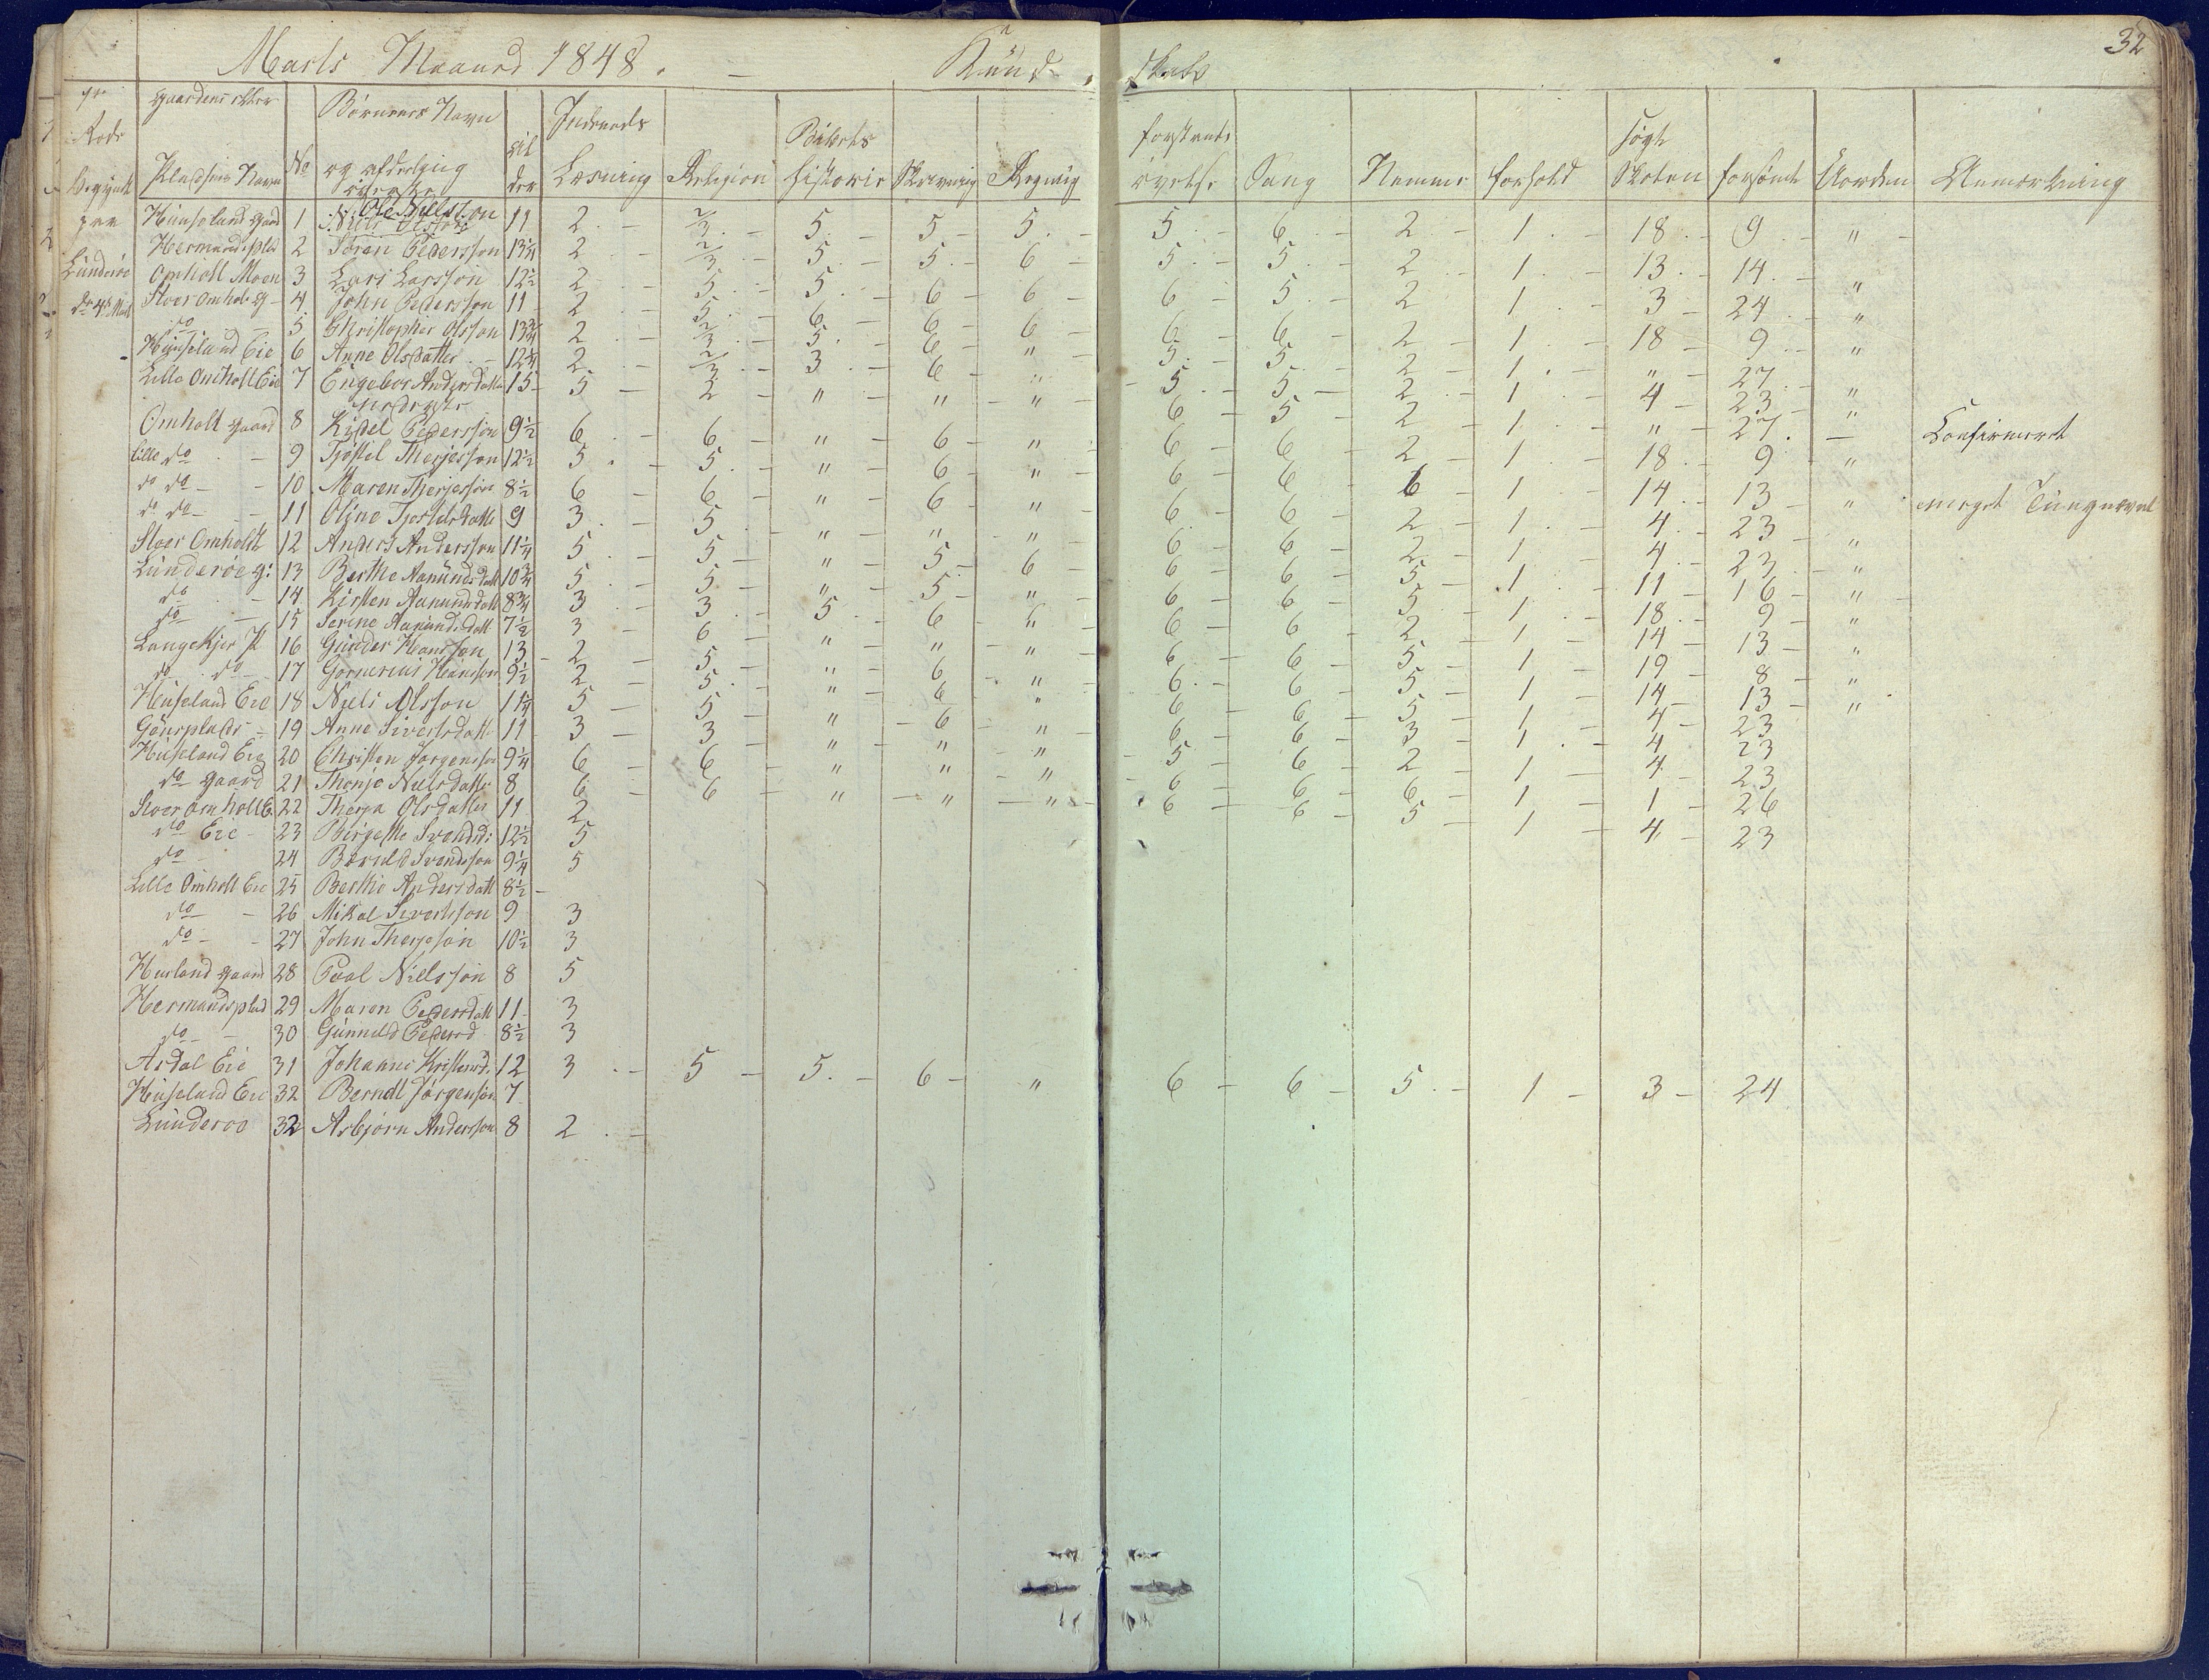 32
Marts Maaned 1848. Kund skabs
Rode Begyndt paa Lunderøe
Gaardens eller Pladsens Navn | No | Børnenes Navn og afdeling øverste | Alder | Indenads Læsning | Religion | Bibels historie | Skrivning | Regning | forstands øvelse | Sang | Nemme | forhold | søgt Skolen | forsömt | Uorden | Anmærkning
Huuseland Gaard 1 Ole Nielsson 11 2 2/3 5 5 5 5 6 2 1 18 9 "
Hermandsplad 2 Søren Pedersson 13 1/4 2 2/3 5 5 6 5 5 2 1 13 14 "
Omholt Moen 3 Lars Larsson 12 1/2 2 5 5 6 6 6 5 2 1 3 24 "
Stoer Omholt G 4 John Pedersson 11 2 5 6 6 6 6 6 2 1 18 9 "
do 5 Christopher Olsson 13 3/4 2 2/3 5 6 " 5 5 2 1 " 27 "
Huuseland Eie 6 Anne Olsdatter 12 1/4 2 2/3 3 6 " 5 5 2 1 4 23 "
Lille Omholt Eie 7 Engebor Andersdatter 15 5 2 " " " 6 5 2 1 " 27 - Confirmeret
nederste
Omholt Gaard 8 Kidel Pedersson 9 1/2 6 6 " 6 " 6 6 2 1 18 9 "
Lille do 9 Tjöstel Therjesson 12 1/2 5 5 " 6 " 6 6 6 1 14 13 " meget Tungnæmt
do do 10 Maren Therjesson 8 1/2 6 6 " 6 " 6 6 2 1 4 23 "
do do 11 Oline Tjostelsdatt 9 3 5 " " " 6 6 2 1 4 23 "
Stoer Omholdt 12 Anders Andersson 11 1/4 5 5 " 5 6 6 6 5 1 11 16 "
Lunderöe g: 13 Berthe Aanundsdatt 10 3/4 5 5 " 5 " 6 6 5 1 18 9 "
do 14 Kirsten Aanundsdatt 8 3/4 3 3 5 6 6 6 6 2 1 14 13 "
do 15 Serine Aanundsdatt 7 1/2 3 6 " " " 6 6 5 1 19 8 "
Langekjer Pl 16 Gunder Hansson 13 2 5 " 6 " 6 6 5 1 14 13 "
do do 17 Hansson 9 1/2 2 5 " 6 " 6 6 5 1 4 23
Huuseland Eie 18 Niels Olsson 11 1/4 5 5 " 6 " 6 6 3 1 4 23
19 Anne Sivertsdatt 11 3 3 " " " 5 6 2 1 4 23
Huuseland Eie 20 Christen Jorgensson 9 1/4 6 6 " " " 6 6 6 1 1 26
do Gaard 21 Thonje Nielsdatter 8 6 6 " " " 6 6 5 1 4 23
Stoer Omholt E 22 Therja Olsdatter 11 2
do Eie 23 Birgette Svendsd: 12 1/2 5
do 24 Bernld Svendsson 9 1/4 5
Lille Omholt Eie 25 Berthe Andersdatt 8 1/2
do 26 Mikal Sivertsson 9 3
do 27 John Therjeson 10 1/2 3
Husland Gaard 28 Poal Nielsson 8 5
Hermandsplad 29 Maren Pedersdatt 11 3
do 30 Gunnild Pedersd 8 1/2 3
Asdal Eie 31 Johanne Kristensd: 12 3 5 5 6 " 6 6 5 1 3 24
Huuseland Eie 32 Berndt Jörgenson 7
Lunderoo 32 Asbjørn Andersson 8 2